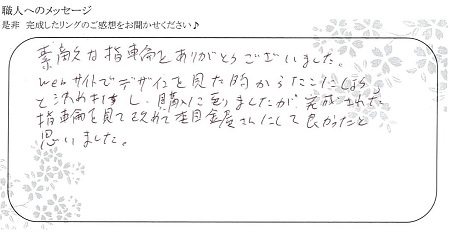 職人へのメッセージ
是非 完成したリングのご感想をお聞かせください♪
素敵な指輪をありがとうございました。
webサイトでデザインを見た時からここにしよう
と決めていました。購入に至りましたが完成された
指輪を見て改めて杢目金屋さんにして良かったと
思いました。